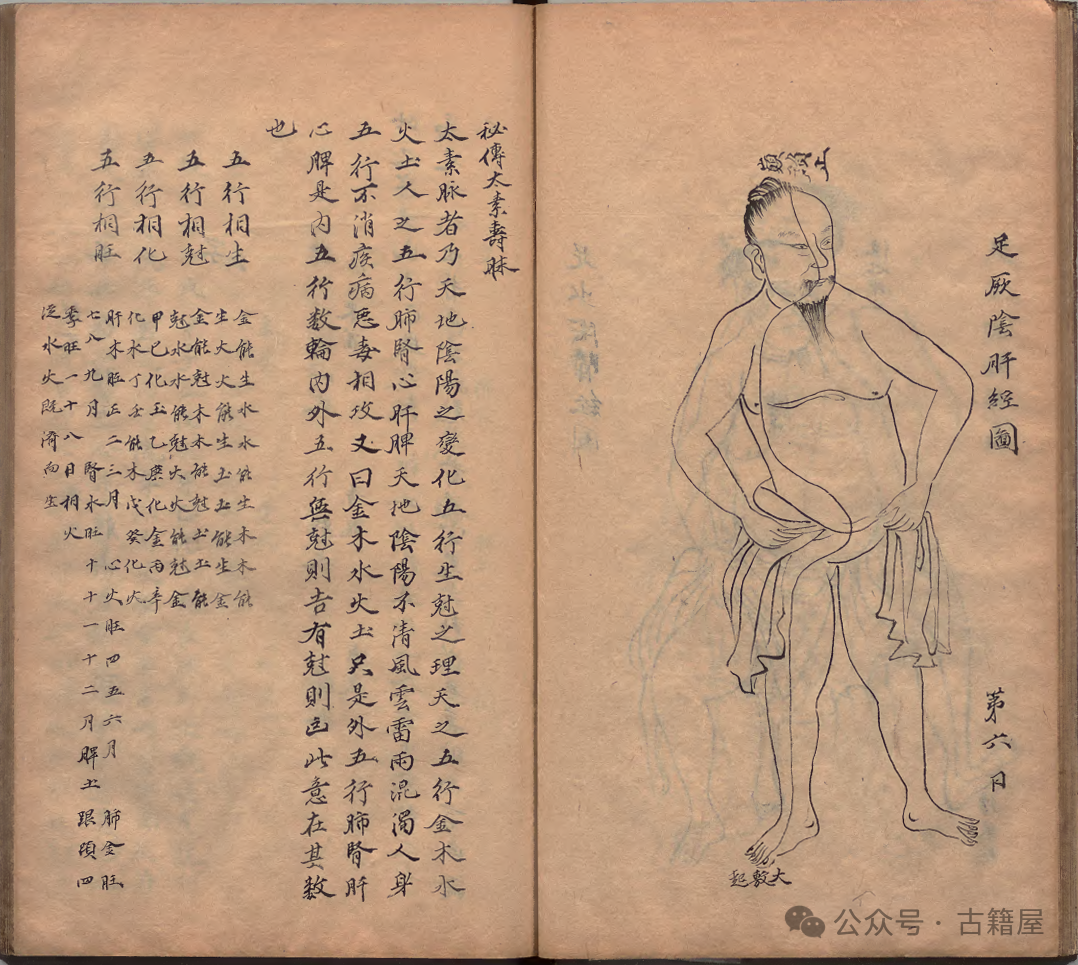 足厥陰肝經圖
第六月
大敦起
秘傳太素壽脉
太素脉者乃天地陰陽之變化五行生尅之理天之五行金木水
火土人之五行肺腎心肝脾天地陰陽不清風雲雷雨混濁人身
五行不消疾病惡毒相攻又曰金木水火土只是外五行肺腎肝
心脾是内五行数輪内外五行無尅則吉有尅則凶此意在其数
也
五行相生 金能生水水能生木木能
生火火能生土土能生金
五行相尅 金能尅木木能尅土土能
尅水水能尅火火能尅金
五行相化 甲己化土乙庚化金丙辛
化水丁壬能木戊癸化火
五行相旺 肝木旺正二三月 心火旺四五六月 肺金旺
七八九月 腎水旺十十一十二月脾土 跟頭四
季旺一十八日相火
從水火既濟向生
公众号·古籍屋